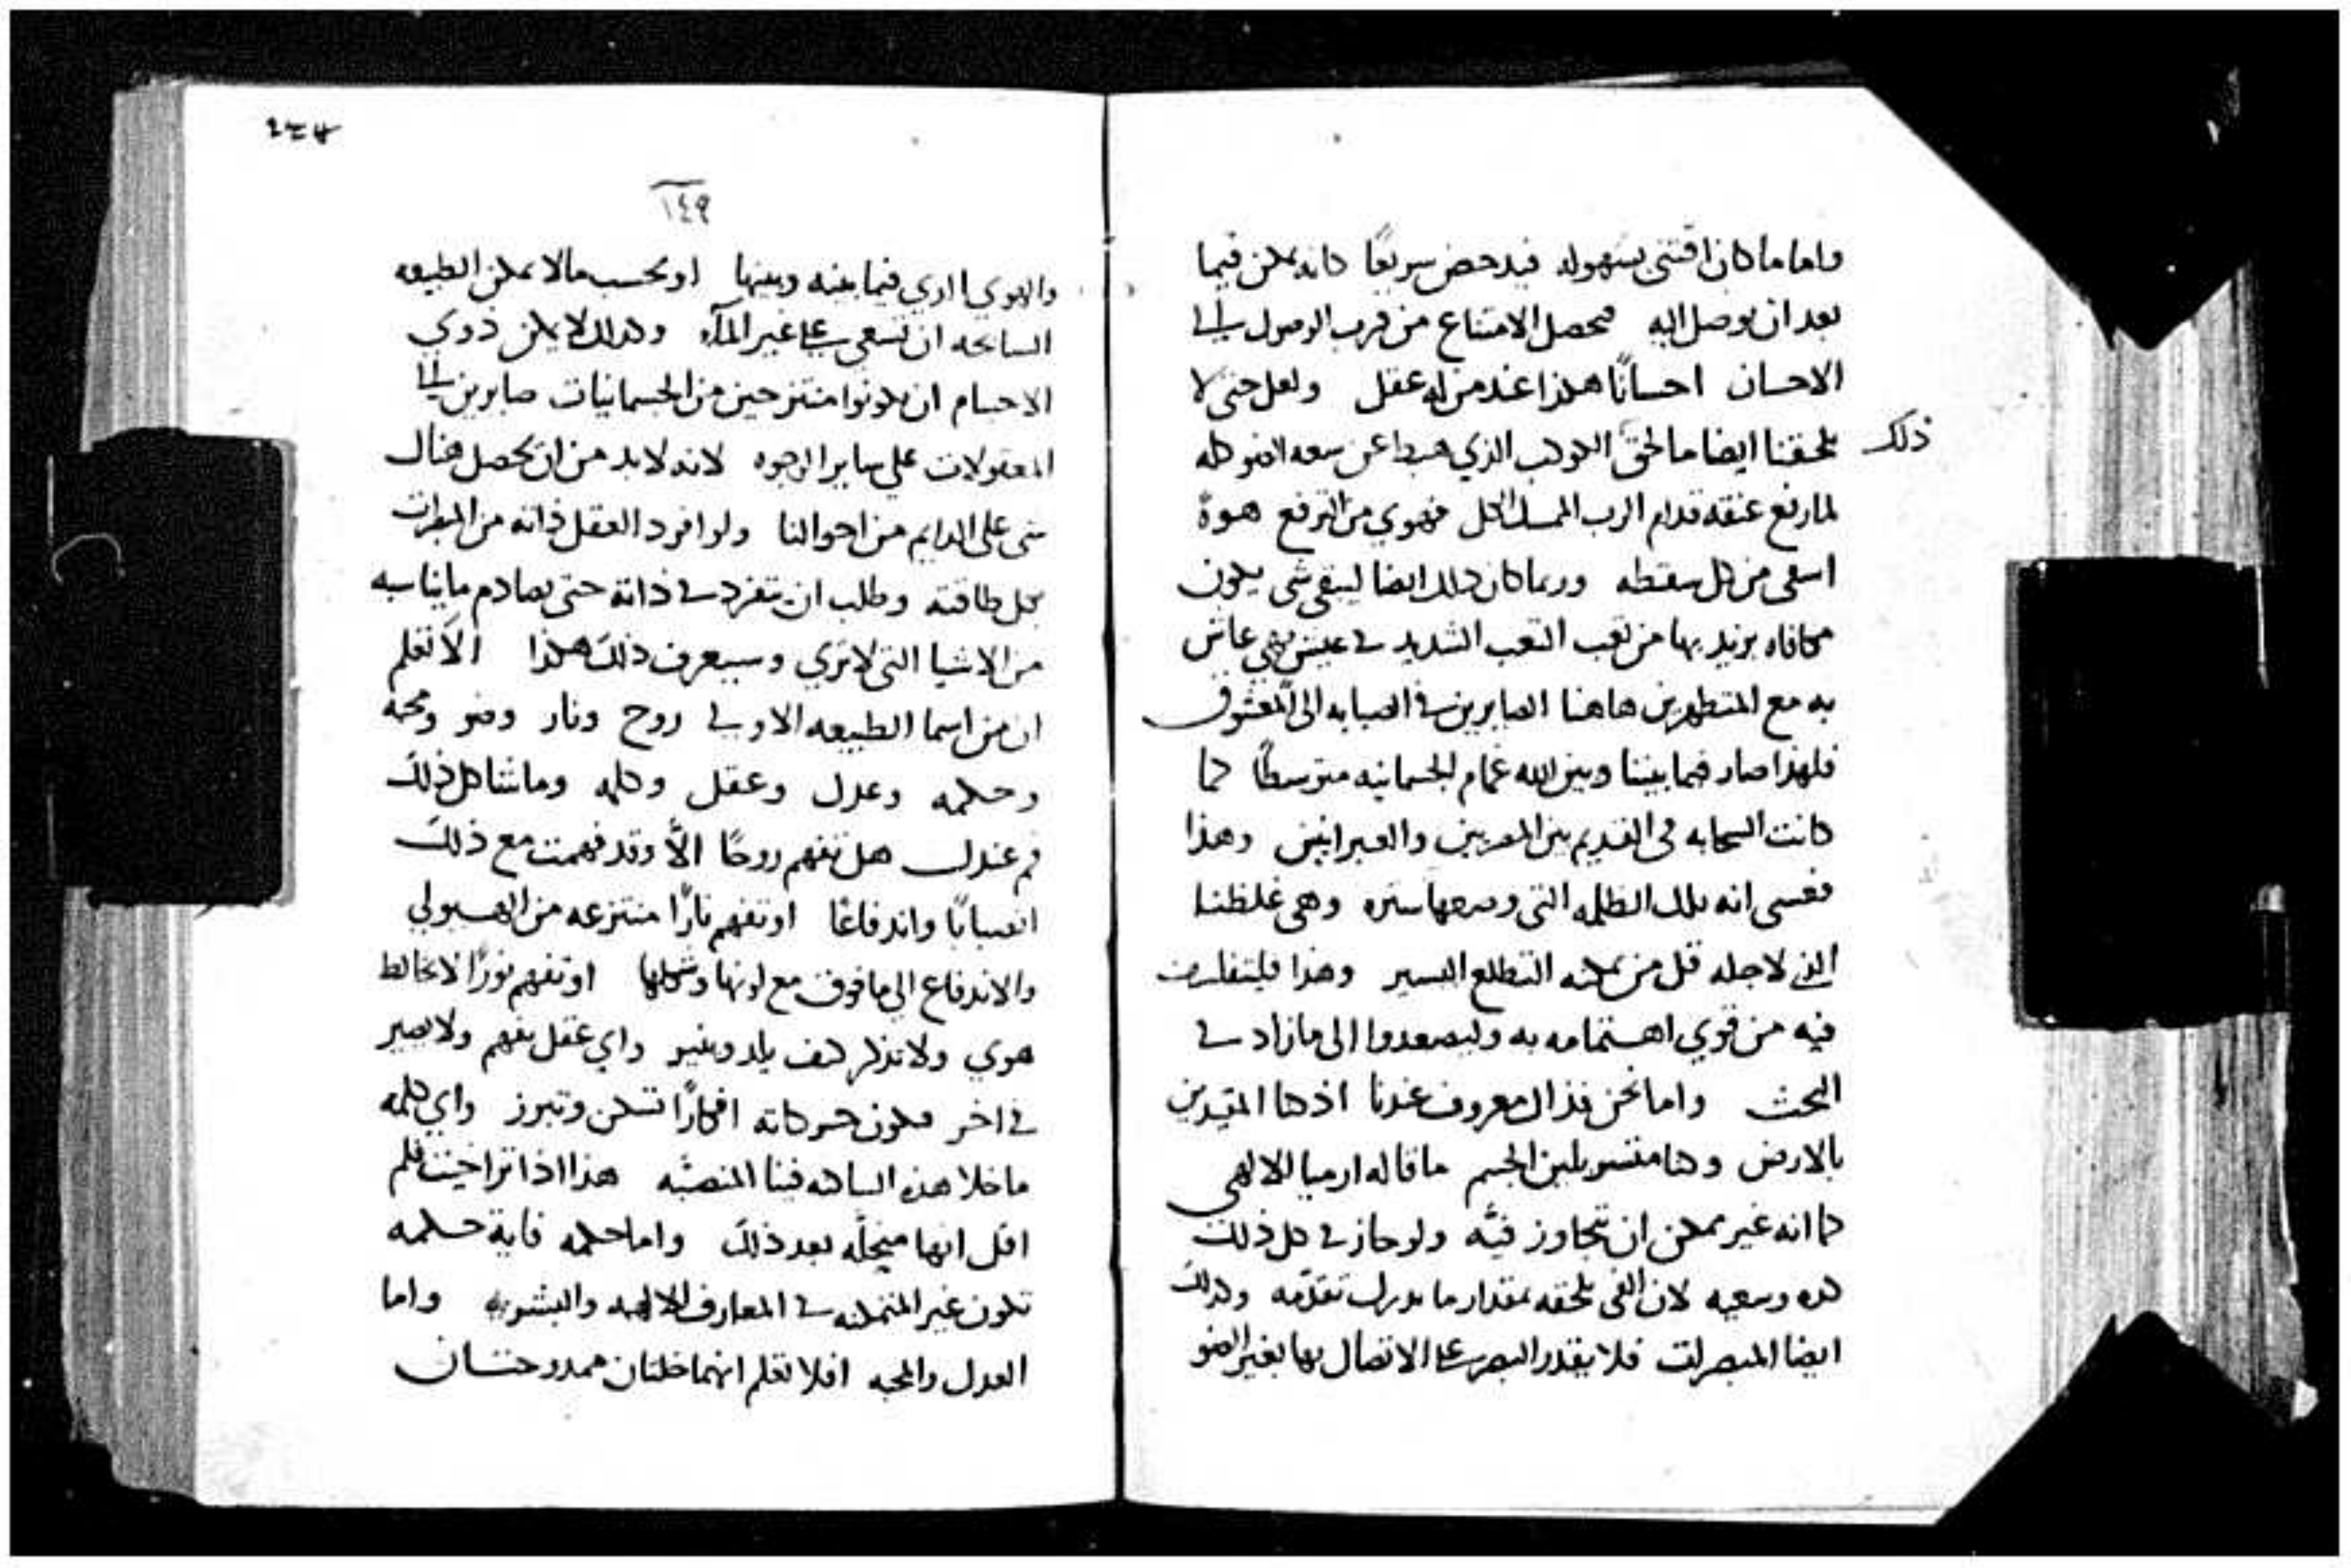 واما ما كان اقتني بسهوله فيدحض سريعًا كانه يمكن فيما
بعد ان يوصل اليه فحصل الامتناع من قرب الوصول الى
الاحسان احسانًا هكذا عند من له عقل ولعل حتى لا
يلحقنا ايضا ما لحق الكوكب الذي هبط عن سعه الضو كله
ذلك
لما رفع عنقه قدام الرب الممسك الكل فهوي من الترفع هوةً
اسقى من كل سقطه وربما كان ذلك ايضا ليبقى شي يكون
مكافاه يزيد بها من تعب التعب الشديد في عيش بهي عاش
به مع المتطهرين هاهنا الصابرين في الصبابه الى المعشوق
فلهذا صار فيما بيننا وبين الله غمام الجسمانيه متوسطًا كما
كانت السحابه في القديم بين المصريين والعبرانيين وهذا
فعسى انه تلك الظلمه التي وضعها ستره وهي غلظنا
الذي لاجله قل من يمكنه التطلع اليسير وهذا فليتفلسف
فيه من قوي اهتمامه به وليصعدوا الى مازاد في
البحث واما نحن فذاك معروف عندنا اذ كنا المقيدين
بالارض وكنا متسربلين الجسم ما قاله ارميا الالهي
كما انه غير ممكن ان تجاوز فيّه ولو حاز في كل ذلك
كده وسعيه لان الفي يلحقه بمقدار ما يدرك تقدّمه وكذلك
ايضا المبصرات فلا يقدر البصر على الاتصال بها بغير الضو
١٤٩
والهوي الذي فيما بينه وبينها او بحسب ما لا يمكن الطبيعه
السابحه ان تسعي على غير المآء وكذلك لا يمكن ذوي
الاجسام ان يكونوا منتزحين من الجسمانيات صابرين الى
المعقولات علي ساير الوجوه لانه لا بد من ان يحصل هناك
شي على الدايم من احوالنا ولو افرد العقل ذاته من المبصرات
بكل طاقته وطلب ان يتفرد في ذاته حتى يصادم ما يناسبه
من الاشيا التي لا تري وسيعرف ذلك هكذا الا تعلم
ان من اسما الطبيعه الاولى روح ونار وضو ومحبه
وحكمه وعدل وعقل وكلمه وما شاكل ذلك
فم عندك هل تفهم روحًا الاّ وقد فهمت مع ذلك
انصبابًا واندفاعًا او تفهم نارًا منتزعه من الهيولي
والاندفاع الي ما فوق مع لونها وشكلها او تفهم نورًا لا يخالط
هوي ولا تذكر كيف يلد وينير واي عقل يفهم ولا يصير
في اخر فيكون حركاته افكارًا تسكن وتبرز واي كلمه
ما خلا هذه الساكنه فينا المنصبّه هذا اذا تراخيت فلم
اقل انها منحلّه بعد ذلك واما حكمه فاية حكمه
تكون غير المتمكنه في المعارف الالهيه والبشريه واما
العدل والمحبه افلا تعلم انهما خلتان ممدوحتان